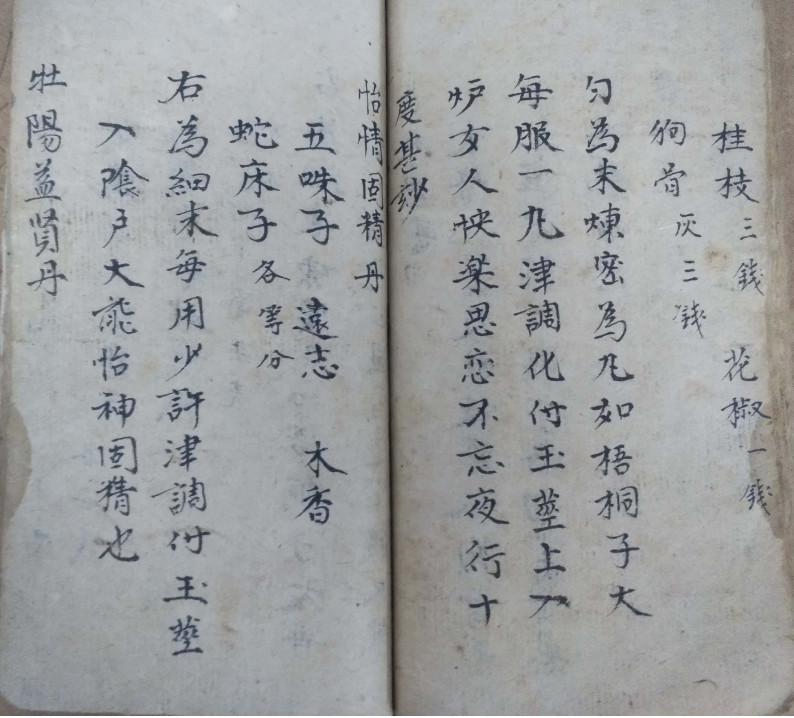 桂枝三錢　花椒一錢
狗骨灰三錢
匀為末煉蜜為凡如梧桐子大
每服一凡津調化付玉莖上入
炉女人怏楽思恋不忘夜行十
度甚妙
怡情固精丹
五味子　遠志　木香
蛇床子各等分
右為細末每用少許津調付玉莖
入陰戶大能怡神固精也
牡陽益賢丹